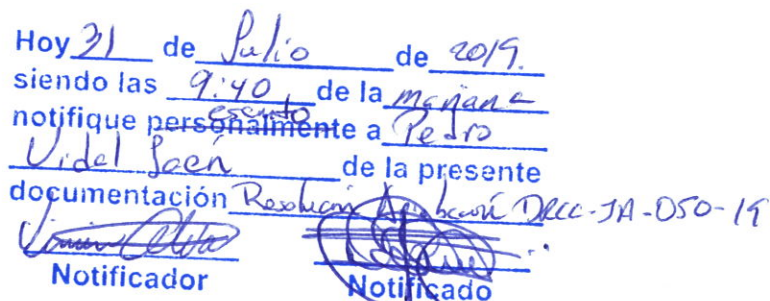 Hoy 31 de Julio de 2019.
siendo las 9:40 de la mañana
escrito
notifique personalmente a Pedro
Vidal Saén de la presente
documentación Resolución Aprobación DRCC-JA-050-19
Notificador Notificado